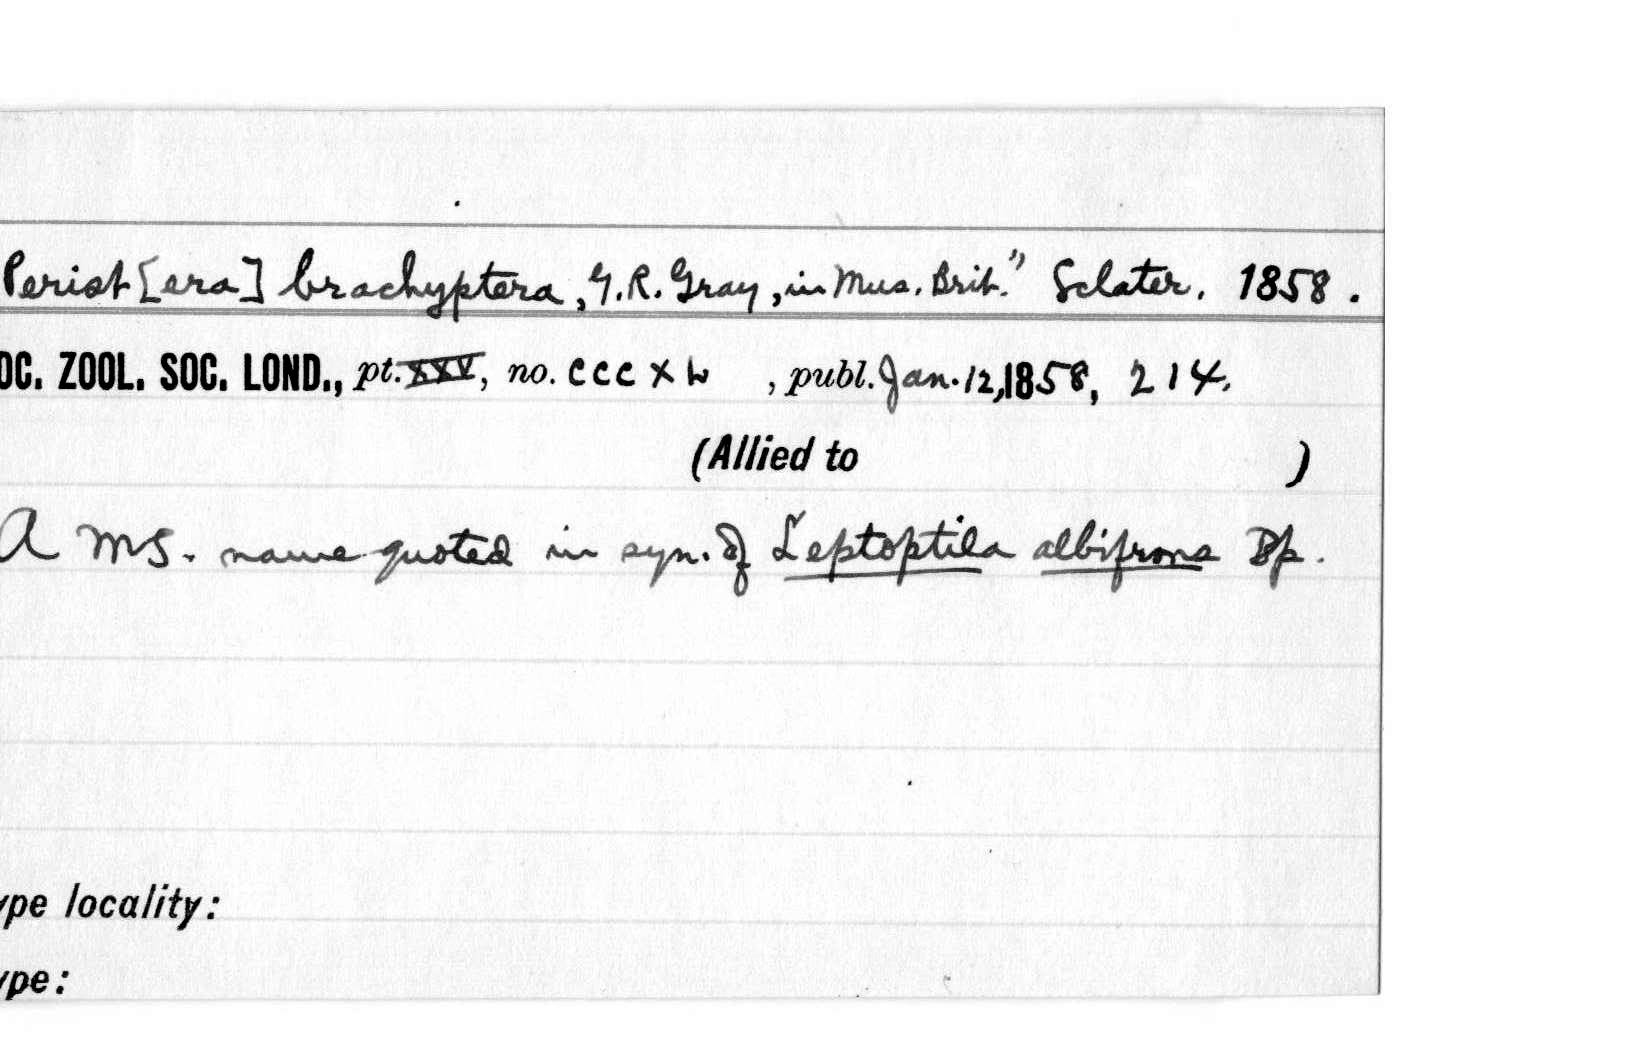 Perist[era] brachyptera, G.R. Gray, in Mus. Brit." Sclater. 1858.
OC. ZOOL. SOC. LOND., pt. XXV, no. CCCXLV, publ. Jan. 12, 1858, 214.
(Allied to )
A MS. name quoted in syn. of Leptoptila albifrons Bp.
ype locality:
ype: